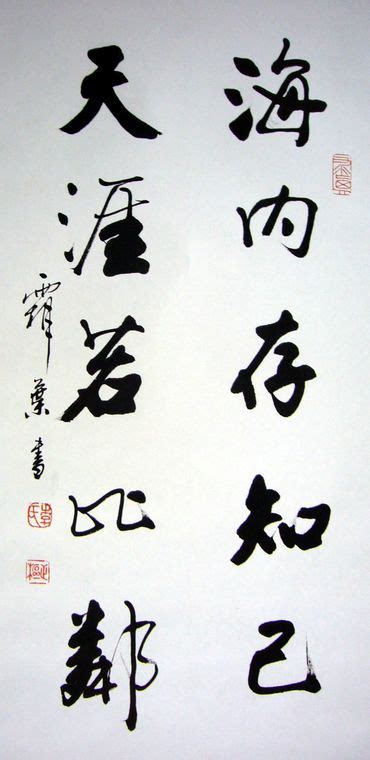 海内存知己
天涯若比鄰
葉書